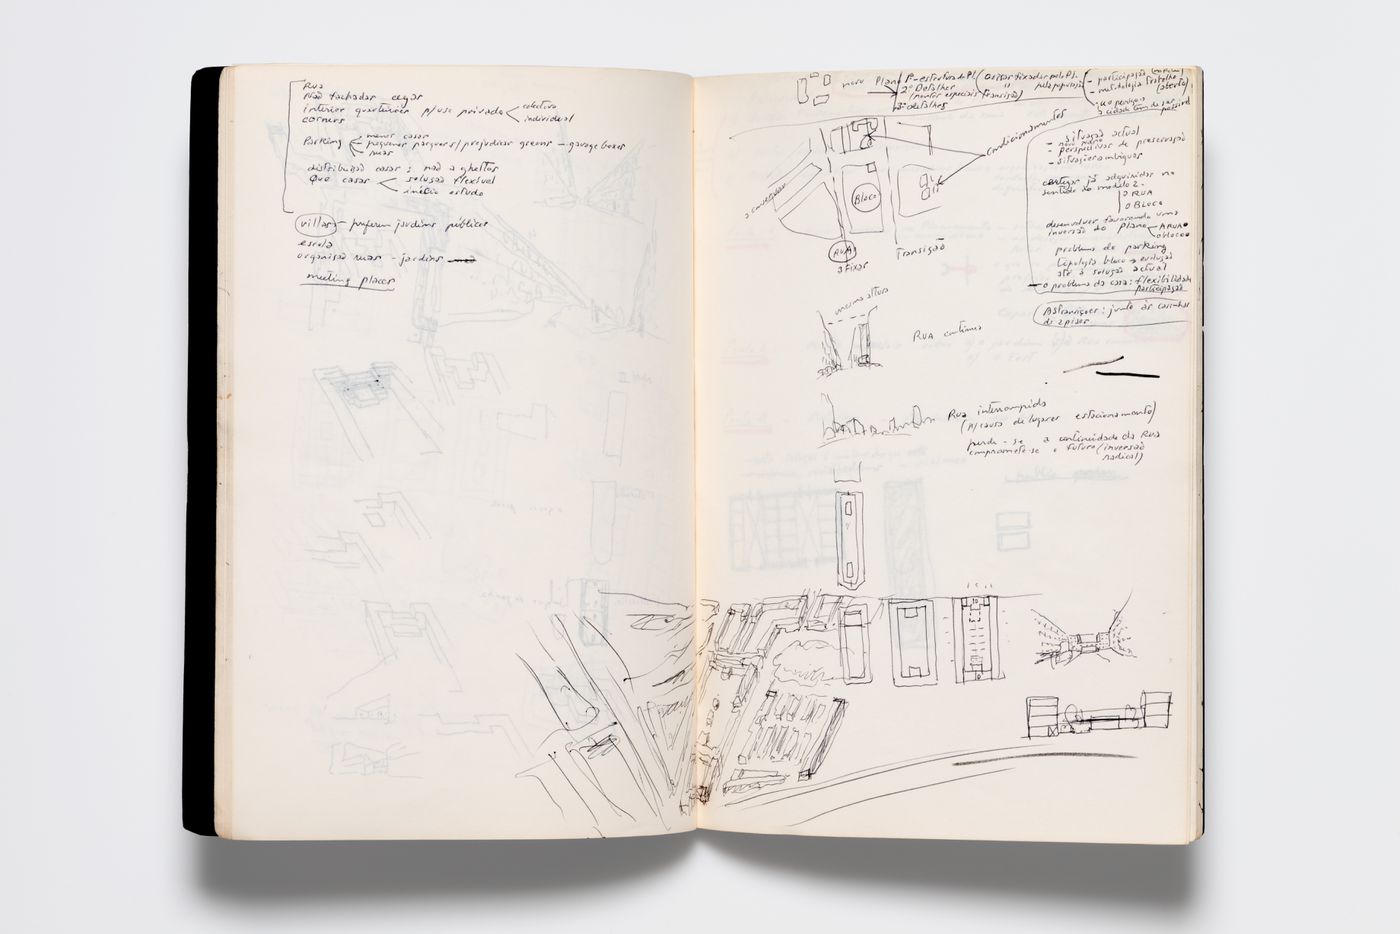 Rua
não fachadas cegas
interior quarteirões p/ uso privado < colectivo
individual
corners
Parking
menos casas
pequenos parques / prejudicar greens — garage boxes
ruas
distribuição casas : não a ghettos
Que casas < solução flexível
início estudo
villas — preferem jardins públicos
escola
organisação ruas - jardins
meeting places
novo Plano
1º - estrutura do Pl.
2º Detalhes
3º detalhes
- participação
- metodologia trabalho
(aberto)
condicionamentos
Bloco
RUA
a fixar
Transição
- situação actual
- perspectivas de preservação
- situações ambíguas
certezas já adquiridas no
sentido do modelo 2.
a RUA
o BLOCO
desenvolver favorecendo uma
inversão do plano < A RUA
o bloco
problema do parking
tipologia bloco → evolução
até à solução actual
— o problema da casa : flexibilidade
participação
Astransições : junto às casinhas
de 2 pisos
mesma altura
RUA contínua
Rua interrompida
(p/ causa de lugares estacionamento)
perde-se a continuidade da Rua
compromete-se o futuro (inversão
radical)